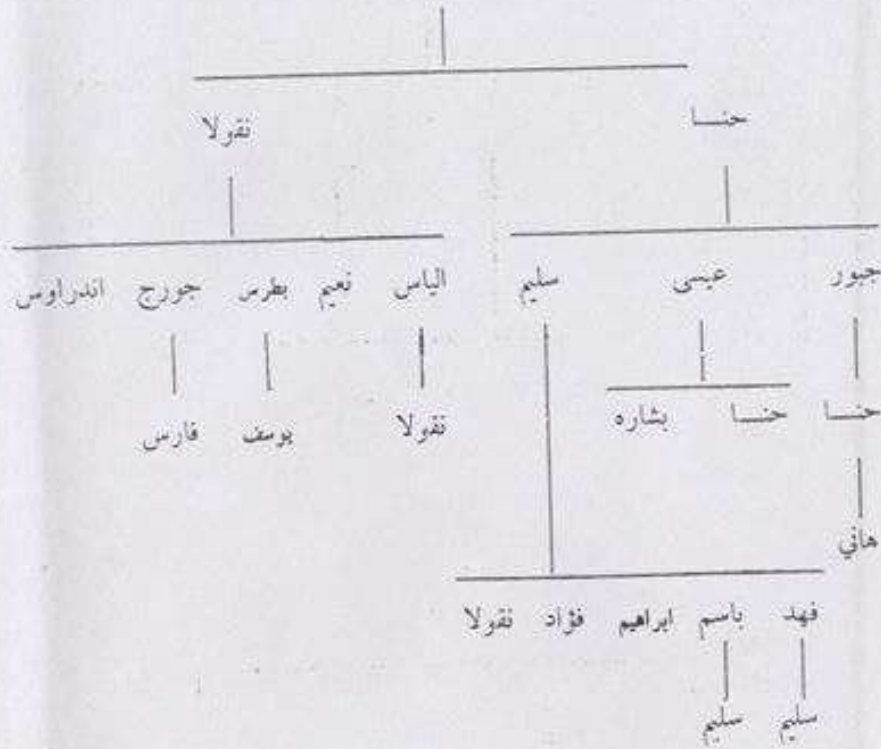 حنا نقولا
جبور عيسى سليم الياس نعيم بطرس جورج اندراوس
حنا حنا بشاره نقولا يوسف فارس
هاني
فهد باسم ابراهيم فؤاد نقولا
سليم سليم